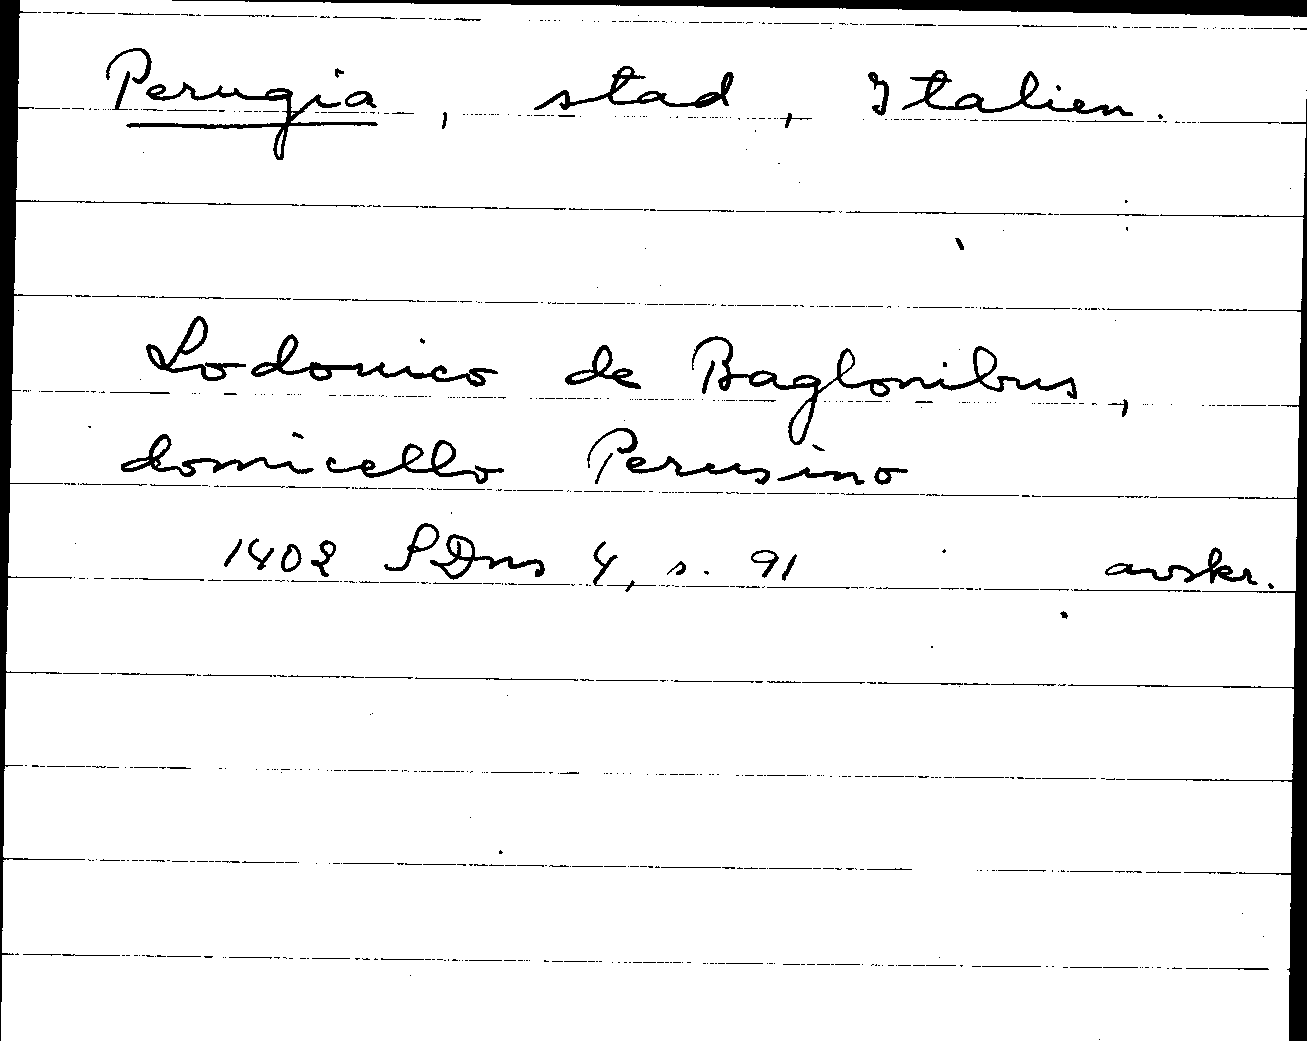 Perugia, stad, Italien.
Lodouico de Baglonibus,
domicello Perusino
1402 SDns 4, s. 91 avskr.